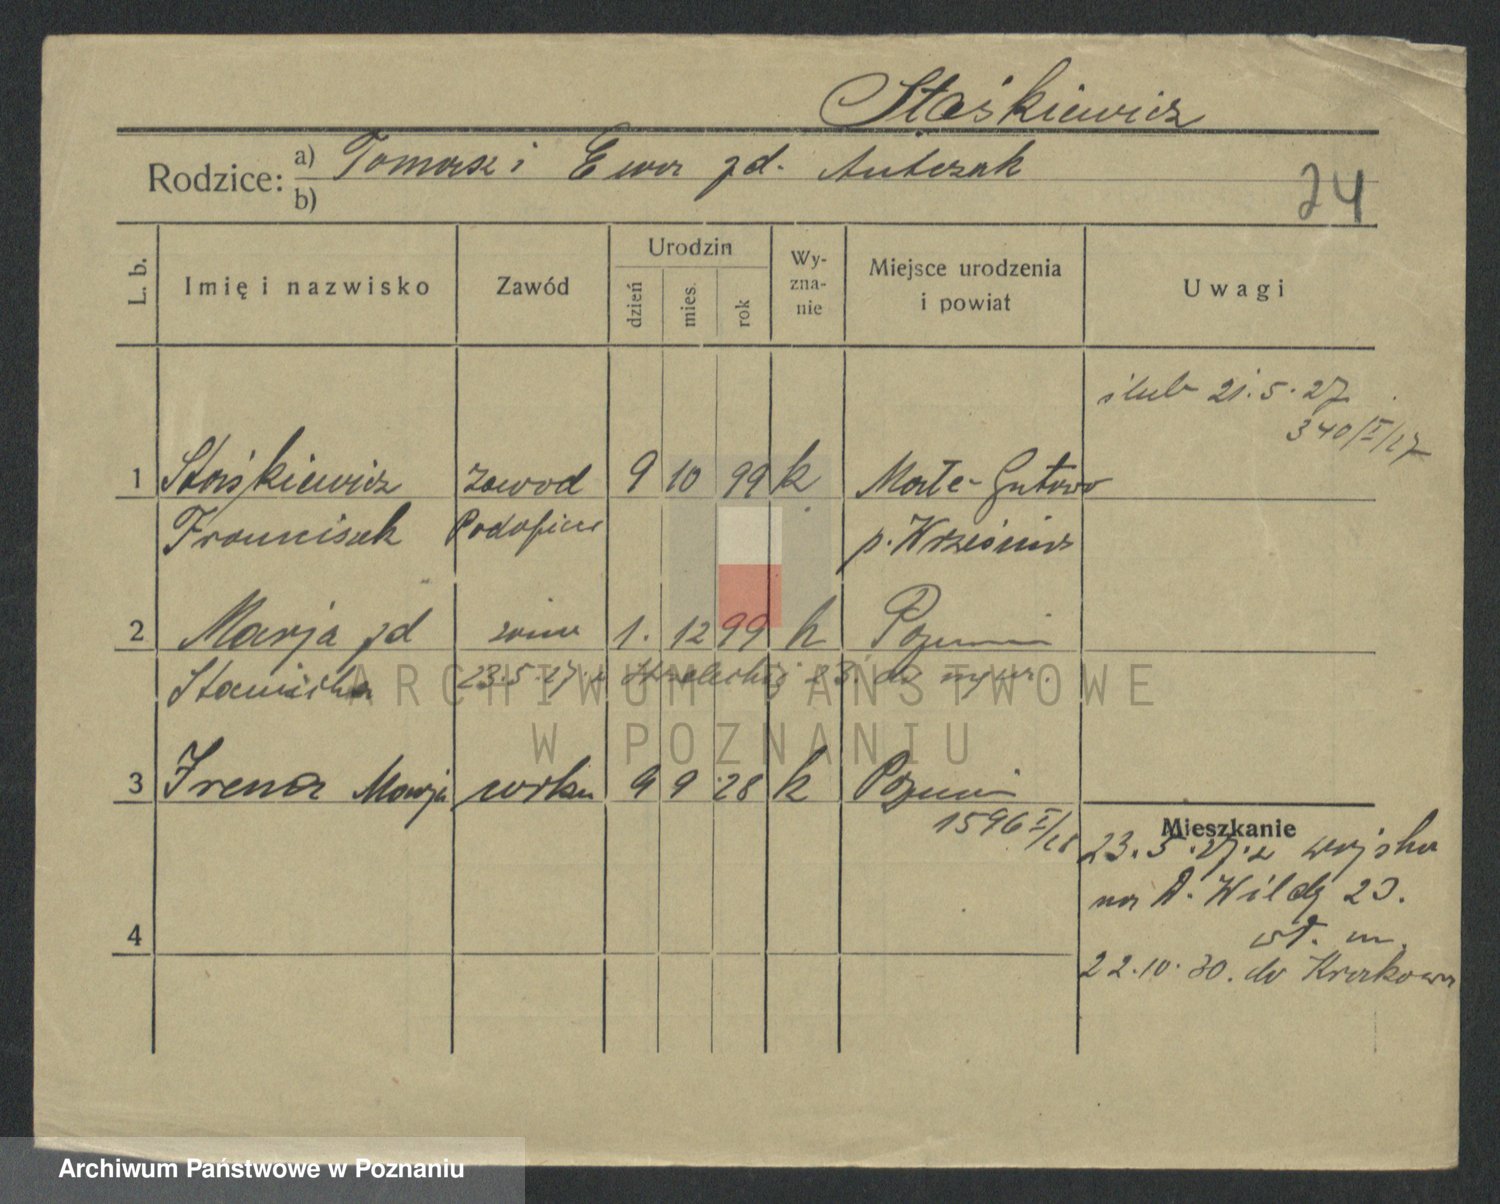 Staśkiewicz
Rodzice: a) Tomasz i Ewa zd. Antczak
b)
24
L. b.
Imię i nazwisko
Zawód
Urodzin
dzień
mies.
rok
Wy-
zna-
nie
Miejsce urodzenia
i powiat
Uwagi
ślub 21.5.27
340/I/27
1 Staśkiewicz zawod 9 10 99 k Małe-Gutowo
Franciszek Podofice p. Września
2 Marja zd żona 1. 12 99 k Poznań
23.5.27 z Strzeleckiej 23.
3 Irena Marja córka 9 9 28 k Poznań
1596 I/28
Mieszkanie
23.5.27. z wojska
na D. Wildę 23.
wł. m.
4
22.10.30. do Krakowa
ARCHIWUM PAŃSTWOWE
W POZNANIU
Archiwum Państwowe w Poznaniu